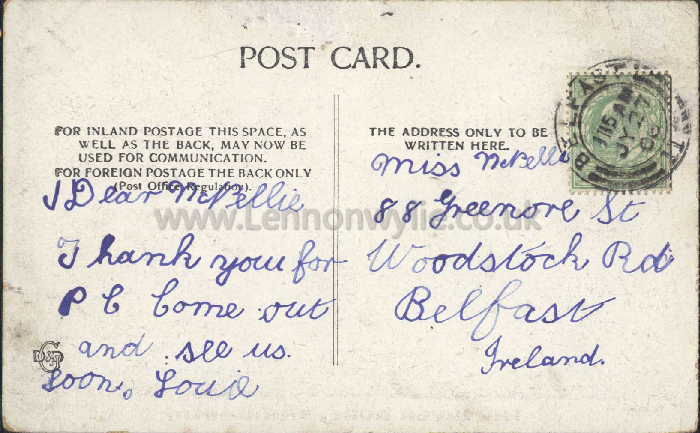 POST CARD.
FOR INLAND POSTAGE THIS SPACE, AS
WELL AS THE BACK, MAY NOW BE
USED FOR COMMUNICATION.
FOR FOREIGN POSTAGE THE BACK ONLY
(Post Office Regulation).
Dear McBellie
Thank you for
P C Come out
and see us.
Soon, Louie
THE ADDRESS ONLY TO BE
WRITTEN HERE.
Miss McBelli
88 Greenore St
Woodstock Rd
Belfast
Ireland.
BELFAST
1115 AM
JY 27
06
www.Lennonwylie.co.uk